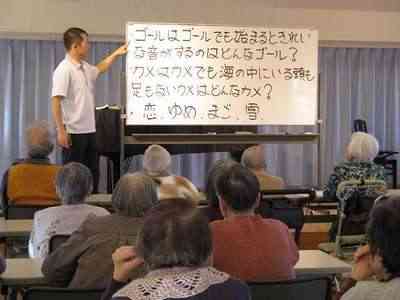 ゴールはゴールでも始まるときれい
な音がするのはどんなゴール？
カメはカメでも海の中にいる頭も
足もないカメはどんなカメ？
・恋．ゆめ．まご．雪．